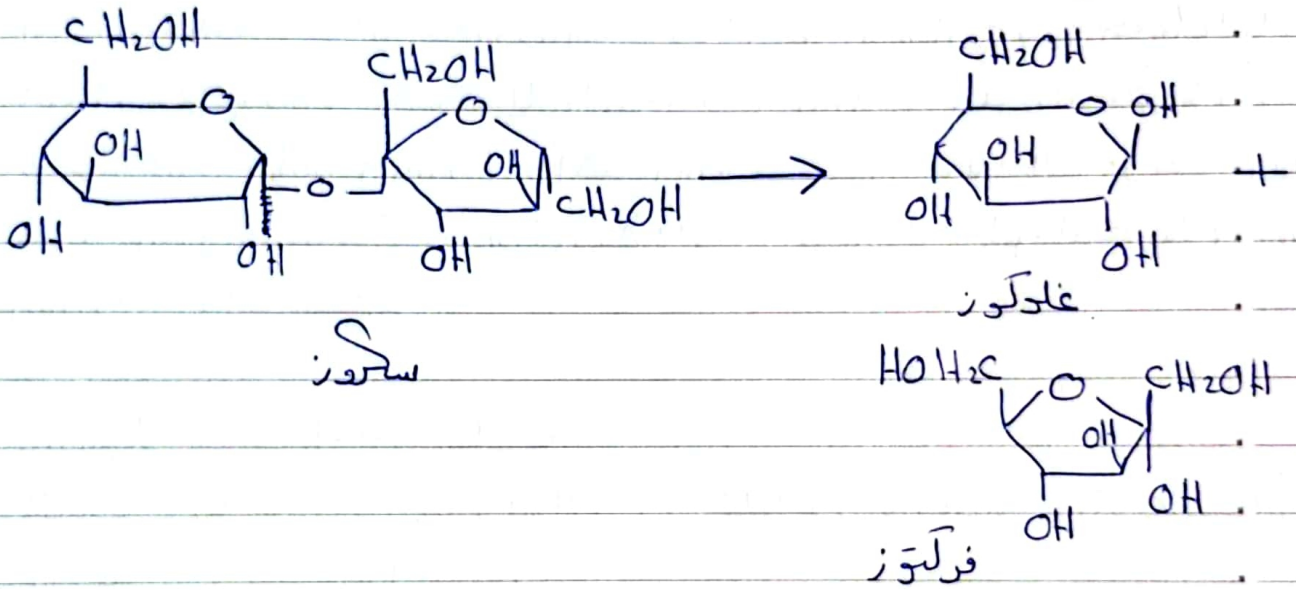 CH₂OH
O
OH
OH
OH
O
CH₂OH
O
OH
OH
CH₂OH
سكروز
→
CH₂OH
O
OH
OH
OH
OH
غلوكوز
+
HOH₂C
O
CH₂OH
OH
OH
OH
فركتوز